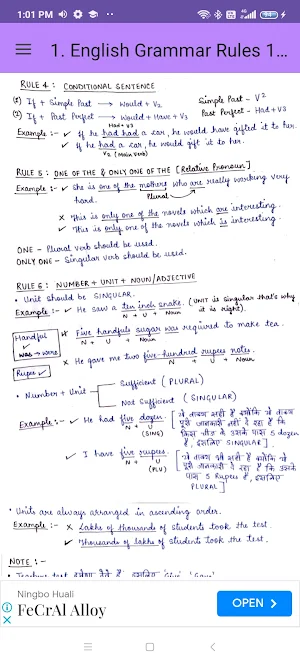 1:01 PM
94
1. English Grammar Rules 1...
RULE 4 : CONDITIONAL SENTENCE
(1) If + Simple Past → Would + V₂ Simple Past - V²
(2) If + Past Perfect → Would + Have + V3 Past Perfect - Had + V3
Had + V3
Example :- ✓ If he had had a car, he would have gifted it to her.
✓ If he had a car, he would gift it to her.
V₂ (Main Verb)
RULE 5 : ONE OF THE & ONLY ONE OF THE [Relative Pronoun]
Example :- ✓ She is one of the mothers who are really working very
hard. Plural
x This is only one of the novels which are interesting.
✓ This is only one of the novels which is interesting.
ONE - Plural verb should be used.
ONLY ONE - Singular verb should be used.
RULE 6 : NUMBER + UNIT + NOUN/ADJECTIVE
• Unit should be SINGULAR.
Example :- ✓ He saw a ten inch snake. (UNIT is singular that's why
N + U + Noun it is right).
Handful ✓
was → were
x Five handfuls sugar was required to make tea.
N + U + Noun
Rupee ✓
x He gave me two five-hundred rupees notes.
N + U + Noun
• Number + Unit
Sufficient (PLURAL)
Not Sufficient (SINGULAR)
Example :- ✓ He had five dozen.
N + U
(SING)
[ ये वाक्य सही है क्योंकि ये वाक्य पूरी जानकारी नहीं दे रहा है कि किस चीज के उसके पास 5 dozen हैं, इसलिए SINGULAR ]
✓ I have five rupees.
N + U
(PLU)
[ ये वाक्य भी सही है क्योंकि ये पूरी जानकारी दे रहा है कि उसके पास 5 Rupees हैं, इसलिए PLURAL ]
• Units are always arranged in ascending order.
Example :- x Lakhs of thousands of students took the test.
✓ Thousands of lakhs of students took the test.
NOTE :-
Ningbo Huali
FeCrAl Alloy
OPEN